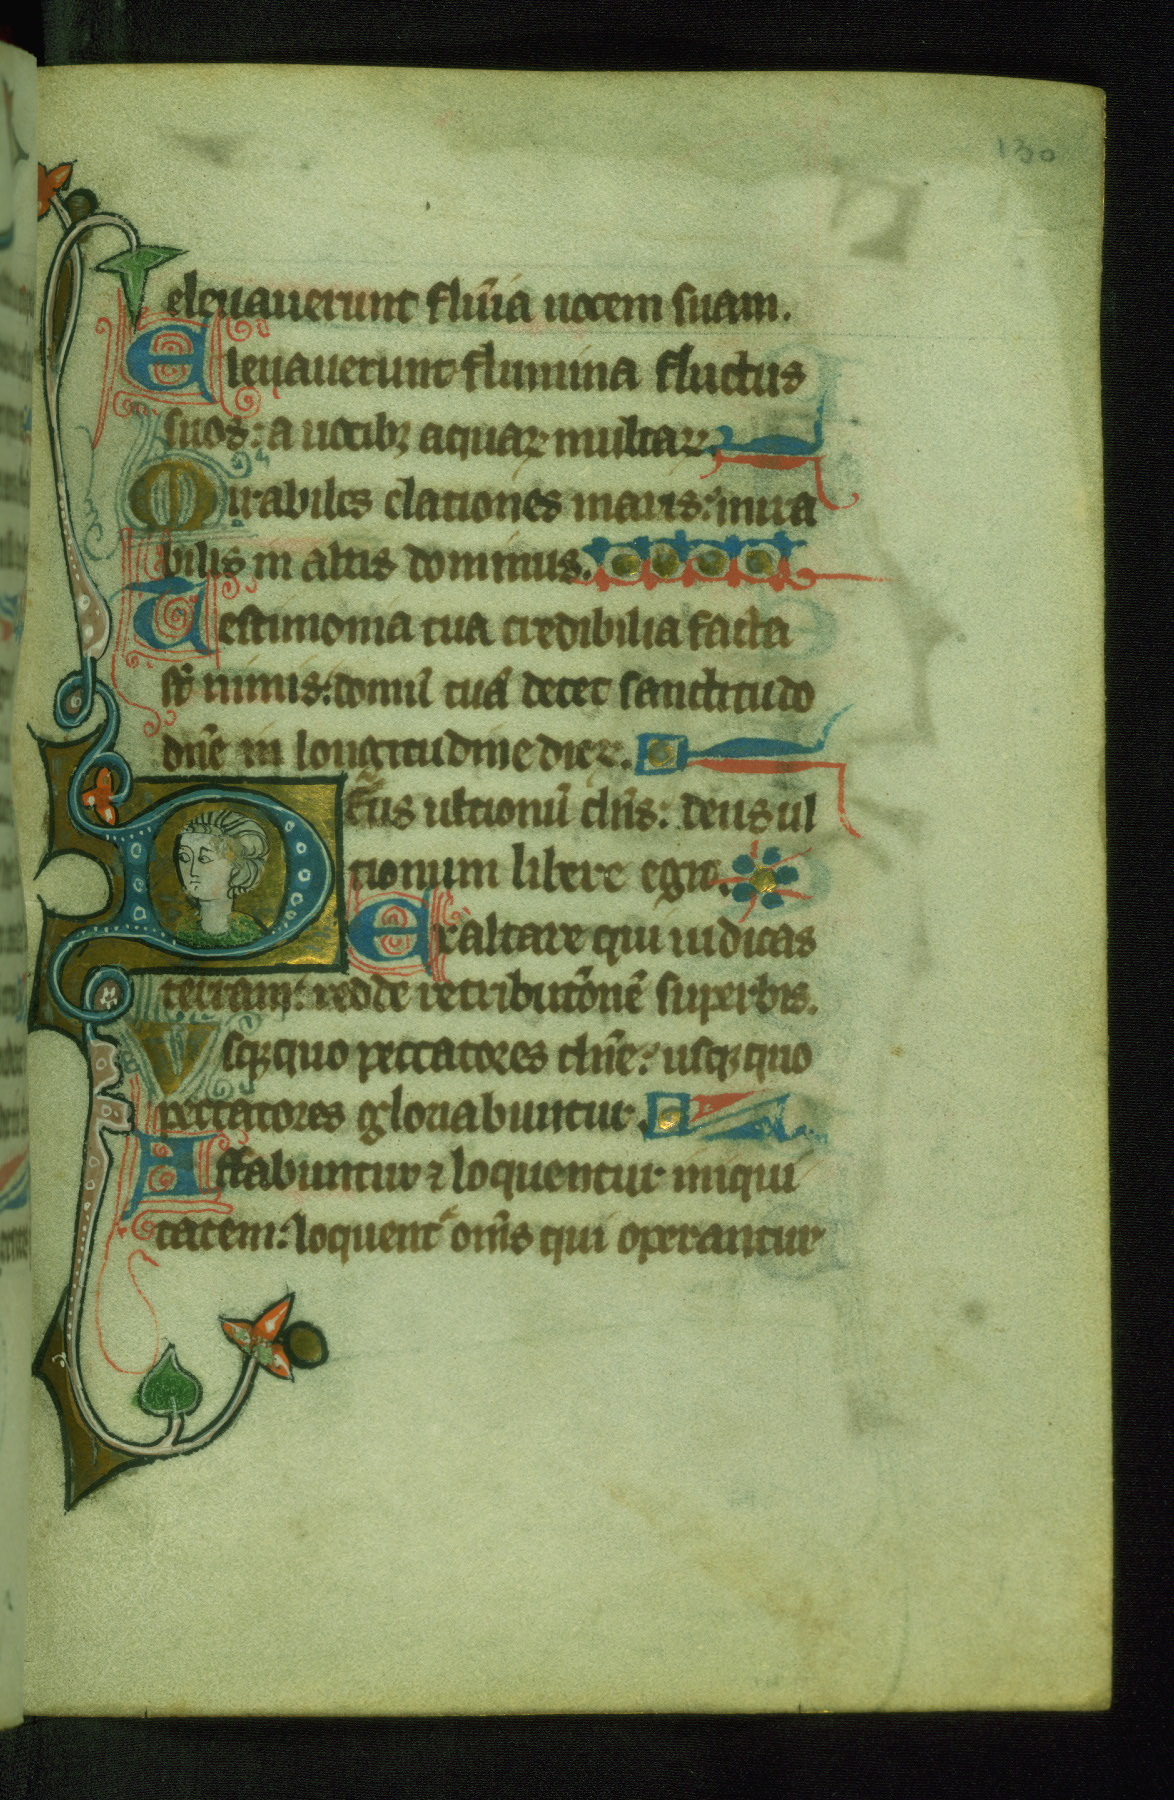 130
eleuauerunt flūia uocem suam.
Eleuauerunt flumina fluctus
suos: a uocibꝫ aquaꝝ multaꝝ.
Mirabiles elationes maris: mira
bilis in altis dominus.
Testimonia tua credibilia facta
st̄ nimis: domū tuā decet sanctitudo
dn̄e in longitudine dieꝝ.
Deus ultionū dn̄s: deus ul
tionum libere egit.
Exaltare qui iudicas
terram: redde retributōnē superbis.
Vsqꝫquo peccatores dn̄e: usqꝫ quo
peccatores gloriabuntur.
Affabuntur ⁊ loquentur iniqui
tatem: loquent᷑ om̄s qui operantur